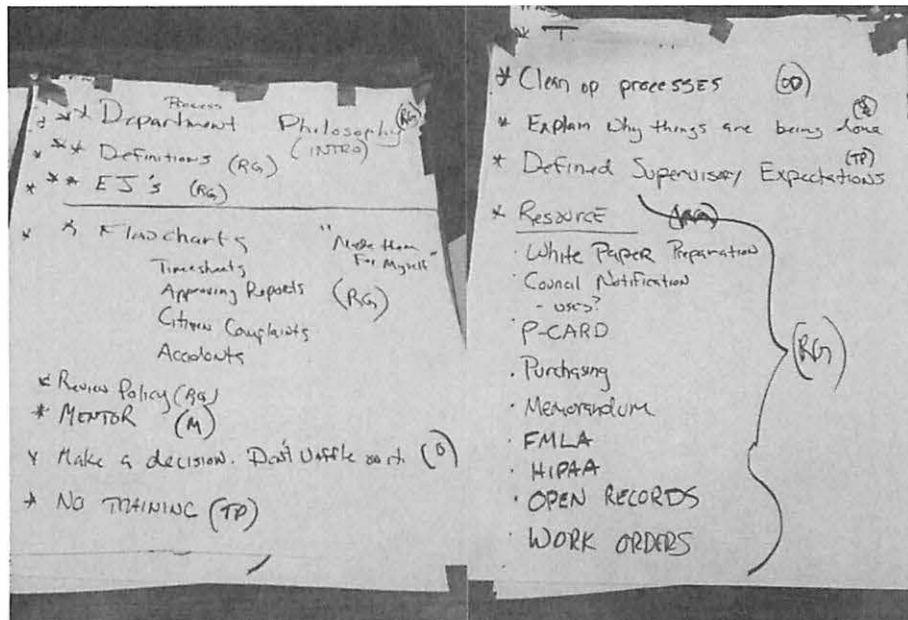 Process
*** Department Philosophy (RG)
(INTRO)
*** Definitions (RG)
*** EJ's (RG)
* * Flowcharts "Made them
For Myself"
Timesheets
Approving Reports (RG)
Citizen Complaints
Accidents
* Review Policy (RG)
* MENTOR (M)
* Make a decision. Don't waffle on it. (D)
* NO TRAINING (TP)
* Clean up processes (OD)
* Explain why things are being done
* Defined Supervisory Expectations (TP)
* Resource
· White Paper Preparation
· Council Notification
- uses?
· P-CARD
· Purchasing
· Memorandum
· FMLA
· HIPAA
· OPEN RECORDS
· WORK ORDERS
(RG)